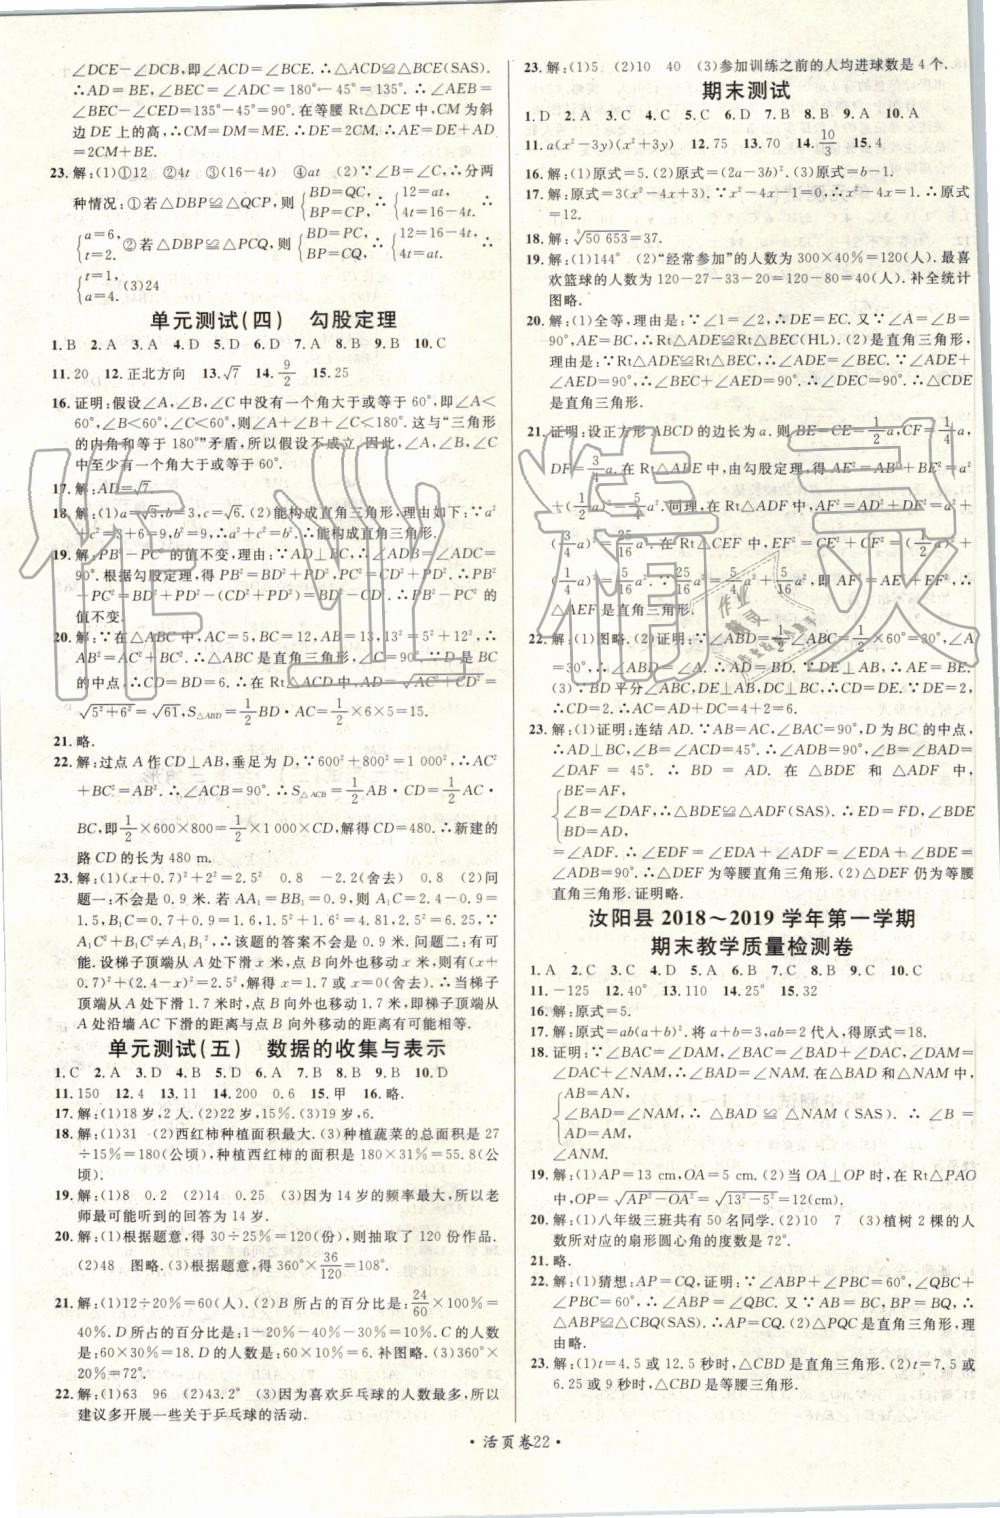 ∠DCE-∠DCB,即∠ACD=∠BCE.∴△ACD≌△BCE(SAS).
∴AD=BE,∠BEC=∠ADC=180°-45°=135°.∴∠AEB=
∠BEC-∠CED=135°-45°=90°.在等腰Rt△DCE中,CM为斜
边DE上的高,∴CM=DM=ME.∴DE=2CM.∴AE=DE+AD
=2CM+BE.
23.解:(1)①12 ②4t ③(16-4t) ④at (2)∵∠B=∠C,∴分两
种情况:①若△DBP≌△QCP,则{BD=QC, BP=CP,∴{12=at, 4t=16-4t.∴
{a=6, t=2. ②若△DBP≌△PCQ,则{BD=PC, BP=CQ,∴{12=16-4t, 4t=at.∴
{t=1, a=4. (3)24
单元测试(四) 勾股定理
1.B 2.A 3.A 4.D 5.D 6.D 7.A 8.B 9.B 10.C
11.20 12.正北方向 13.√7 14.9/2 15.25
16.证明:假设∠A,∠B,∠C中没有一个角大于或等于60°,即∠A<
60°,∠B<60°,∠C<60°,则∠A+∠B+∠C<180°.这与“三角形
的内角和等于180°”矛盾,所以假设不成立.因此,∠A,∠B,∠C
中至少有一个角大于或等于60°.
17.解:AD=√7.
18.解:(1)a=√3,b=3,c=√6.(2)能构成直角三角形,理由如下:∵a²
+c²=3+6=9,b²=9,∴a²+c²=b².∴能构成直角三角形.
19.解:PB²-PC²的值不变,理由:∵AD⊥BC,∴∠ADB=∠ADC=
90°.根据勾股定理,得PB²=BD²+PD²,PC²=CD²+PD².∴PB²-
PC²=BD²+PD²-(CD²+PD²)=BD²-CD².∴PB²-PC²的
值不变.
20.解:∵在△ABC中,AC=5,BC=12,AB=13,13²=5²+12²,∴
AB²=AC²+BC².∴△ABC是直角三角形,∠C=90°.∵D是BC
的中点,∴CD=BD=6.∴在Rt△ACD中,AD=√AC²+CD²=
√5²+6²=√61,S△ABD=1/2BD·AC=1/2×6×5=15.
21.略.
22.解:过点A作CD⊥AB,垂足为D.∵600²+800²=1 000²,∴AC²
+BC²=AB².∴△ABC是直角三角形.∴S△ACB=1/2AB·CD=1/2AC·
BC,即1/2×600×800=1/2×1 000×CD,解得CD=480.∴新建的
路CD的长为480 m.
23.解:(1)(x+0.7)²+2²=2.5² 0.8 -2.2(舍去) 0.8 (2)问
题一:不会是0.9米.若AA₁=BB₁=0.9,则A₁C=2.4-0.9=
1.5,B₁C=0.7+0.9=1.6,1.5²+1.6²=4.81,2.5²=6.25.∵
A₁C²+B₁C²≠A₁B₁²,∴该题的答案不会是0.9米.问题二:有可
能.设梯子顶端从A处下滑x米,点B向外也移动x米,则有(x+
0.7)²+(2.4-x)²=2.5²,解得x=1.7或x=0(舍去).∴当梯子
顶端从A处下滑1.7米时,点B向外也移动1.7米,即梯子顶端
从A处沿墙AC下滑的距离与点B向外移动的距离有可能相等.
单元测试(五) 数据的收集与表示
1.C 2.A 3.D 4.B 5.C 6.D 7.B 8.B 9.B 10.D
11.150 12.4 13.11 14.200 0.6 15.甲 16.略.
17.解:(1)18岁,2人.(2)22岁,15%.(3)19岁,6.
18.解:(1)31 (2)西红柿种植面积最大.(3)种植蔬菜的总面积是27
÷15%=180(公顷),种植西红柿的面积是180×31%=55.8(公
顷).
19.解:(1)8 0.2 (2)14 0.25 (3)因为14岁的频率最大,所以老
师最可能听到的回答为14岁.
20.解:(1)根据题意,得30÷25%=120(份),则抽取了120份作品.
(2)48 图略.(3)根据题意,得360°×36/120=108°.
21.解:(1)12÷20%=60(人).(2)B所占的百分比是:24/60×100%=
40%.D所占的百分比是:1-20%-40%-30%=10%.C的人数
是:60×30%=18.D的人数是:60×10%=6.补图略.(3)360°×
20%=72°.
22.解:(1)63 96 (2)43.2° (3)因为喜欢乒乓球的人数最多,所以
建议多开展一些关于乒乓球的活动.
23.解:(1)5 (2)10 40 (3)参加训练之前的人均进球数是4个.
期末测试
1.D 2.A 3.C 4.C 5.C 6.D 7.B 8.B 9.A 10.A
11.a(x²-3y)(x²+3y) 12.75 13.70 14.10/3 15.4
16.解:(1)原式=5.(2)原式=(2a-3b)².(3)原式=b-1.
17.解:原式=3(x²-4x+3).∵x²-4x-1=0,∴x²-4x=1.∴原式
=12.
18.解:³√50 653=37.
19.解:(1)144° (2)“经常参加”的人数为300×40%=120(人).最喜
欢篮球的人数为120-27-33-20=120-80=40(人).补全统计
图图略.
20.解:(1)全等,理由是:∵∠1=∠2,∴DE=EC.又∵∠A=∠B=
90°,AE=BC,∴Rt△ADE≌Rt△BEC(HL).(2)是直角三角形,
理由是:∵Rt△ADE≌Rt△BEC,∴∠ADE=∠BEC.∵∠ADE+
∠AED=90°,∴∠BEC+∠AED=90°.∴∠DEC=90°.∴△CDE
是直角三角形.
21.证明:设正方形ABCD的边长为a.则BE=CE=1/2a,CF=1/4a,
DF=3/4a.在Rt△ABE中,由勾股定理,得AE²=AB²+BE²=a²
+(1/2a)²=5/4a².同理,在Rt△ADF中,AF²=AD²+DF²=a²+
(3/4a)²=25/16a².在Rt△CEF中,EF²=CE²+CF²=(1/2a)²+
(1/4a)²=5/16a².∵5/4a²+5/16a²=25/16a²,即AF²=AE²+EF²,
∴△AEF是直角三角形.
22.解:(1)图略.(2)证明:∵∠ABD=1/2∠ABC=1/2×60°=30°,∠A
=30°,∴∠ABD=∠A.∴AD=BD.又∵DE⊥AB,∴AE=BE.
(3)∵BD平分∠ABC,DE⊥AB,DC⊥BC,∴CD=DE.∵DE=2,
∴CD=2.∴AC=AD+DC=4+2=6.
23.解:(1)证明:连结AD.∵AB=AC,∠BAC=90°,D为BC的中点,
∴AD⊥BC,∠B=∠ACD=45°.∴∠ADB=90°.∴∠B=∠BAD=
∠DAF=45°.∴BD=AD.在△BDE和△ADF中,
{BE=AF,
∠B=∠DAF,∴△BDE≌△ADF(SAS).∴ED=FD,∠BDE
BD=AD,
=∠ADF.∴∠EDF=∠EDA+∠ADF=∠EDA+∠BDE=
∠ADB=90°.∴△DEF为等腰直角三角形.(2)△DEF仍为等腰
直角三角形.证明略.
汝阳县2018~2019学年第一学期
期末教学质量检测卷
1.A 2.C 3.B 4.C 5.B 6.B 7.C 8.D 9.C 10.C
11.-125 12.40° 13.110 14.25° 15.32
16.解:原式=5.
17.解:原式=ab(a+b)².将a+b=3,ab=2代入,得原式=18.
18.证明:∵∠BAC=∠DAM,∠BAC=∠BAD+∠DAC,∠DAM=
∠DAC+∠NAM,∴∠BAD=∠NAM.在△ABD和△ANM中,
{AB=AN,
∠BAD=∠NAM,∴△BAD≌△NAM(SAS).∴∠B=
AD=AM,
∠ANM.
19.解:(1)AP=13 cm,OA=5 cm.(2)当OA⊥OP时,在Rt△PAO
中,OP=√AP²-OA²=√13²-5²=12(cm).
20.解:(1)八年级三班共有50名同学.(2)10 7 (3)植树2棵的人
数所对应的扇形圆心角的度数是72°.
21.略.
22.解:(1)猜想:AP=CQ,证明:∵∠ABP+∠PBC=60°,∠QBC+
∠PBC=60°,∴∠ABP=∠QBC.又∵AB=BC,BP=BQ,∴
△ABP≌△CBQ(SAS).∴AP=CQ.(2)△PQC是直角三角形,理
由略.
23.解:(1)t=4.5或12.5秒时,△CBD是直角三角形.(2)t=5或
6.25或9秒时,△CBD是等腰三角形.
·活页卷22·
作业精灵
作业精灵